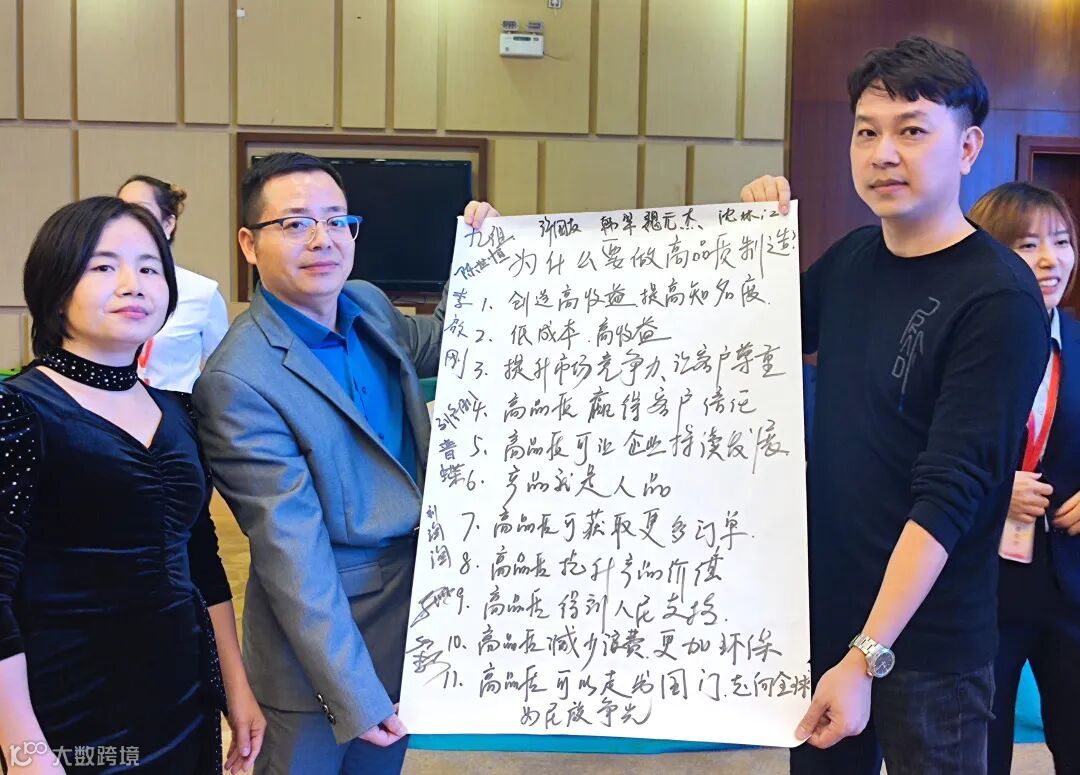 九组 许国友 韩军 魏元杰 沈林江
陈世愷
为什么要做高品质制造?
1. 创造高收益.提高知名度.
2. 低成本.高收益
3. 提升市场竞争力、让客户尊重
4. 高品质 赢得客户信任
5. 高品质可让企业持续发展
6. 产品就是人品
7. 高品质可获取更多订单.
8. 高品质提升产品价值
9. 高品质得到人民支持.
10. 高品质减少浪费.更加环保
11. 高品质可以走出国门.走向全球
为民族争先
李欣刚
曾蝶
刘淘淘
大数跨境